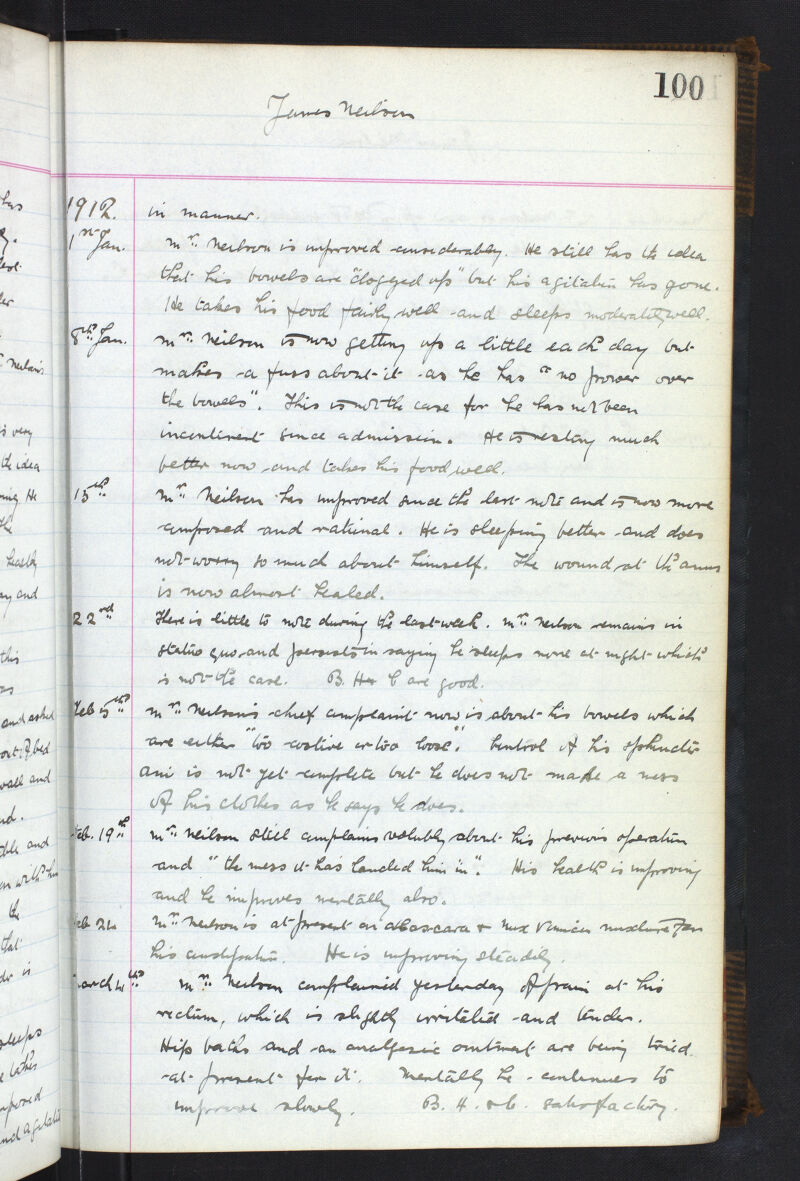 100
James Neilson
1912. in manner.
1st Jan. Mr. Neilson is improved considerably. He still has the idea
that his bowels are "clogged up" but his agitation has gone.
He takes his food fairly well and sleeps moderately well.
8th Jan. Mr. Neilson is now getting up a little each day but
makes a fuss about it as he has "no power over
the bowels". This is not the case for he has not been
incontinent since admission. He is resting much
better now and takes his food well.
15th Mr. Neilson has improved since the last note and is now more
composed and rational. He is sleeping better and does
not worry so much about himself. The wound at the anus
is now almost healed.
22nd There is little to note during the last week. Mr. Neilson remains in
statu quo and persists in saying he sleeps none at night which
is not the case. B. H & C are good.
Feb 5th Mr. Neilson's chief complaint now is about his bowels which
are either "too costive or too loose". Control of his sphincter
ani is not yet complete but he does not make a mess
of his clothes as he says he does.
Feb. 19th Mr. Neilson still complains volubly about his previous operation
and "the mess it has landed him in". His health is improving
and he improves mentally also.
Feb 24 Mr. Neilson is at present on a Cascara & Nux Vomica mixture for
his constipation. He is improving steadily.
March 4th Mr. Neilson complained yesterday of pain at his
rectum, which is slightly irritated and tender.
Hip baths and an analgesic ointment are being tried
at present for it. Mentally he continues to
improve slowly. B. H. & C. satisfactory.